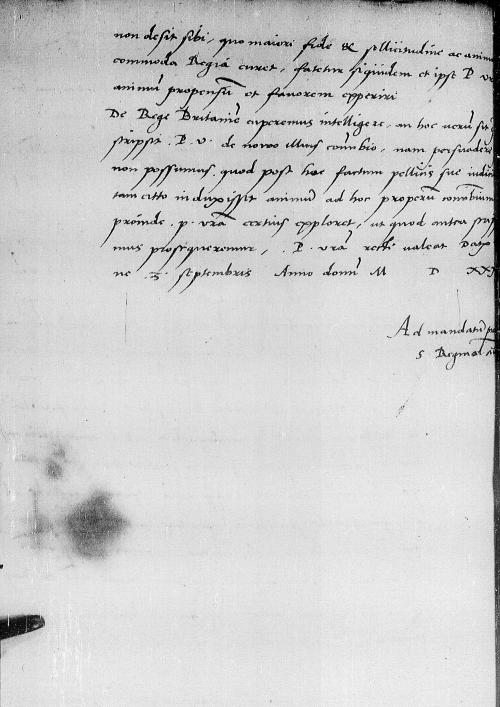 non desit sibi, quo maiori fide & sollicitudine ac anim
commoda Regia curet, fatetur siquidem et ipse P. v
animũ propensũ et favorem experiri
De Rege Britanie cuperemus intelligere, an hoc verũ sit
scripsit . P. v. de novo illius conubio, nam persuadere
non possumus, quod post hoc factum pellicis sue iudic
tam cito induxisset animũ ad hoc properũ conubium
proinde . p. vra certius exploret, ut quod antea
mus prosequeremur, . P. vra recte valeat Dat
ne .3. septembris Anno domi M D XX
Ad mandatũ
s Regina